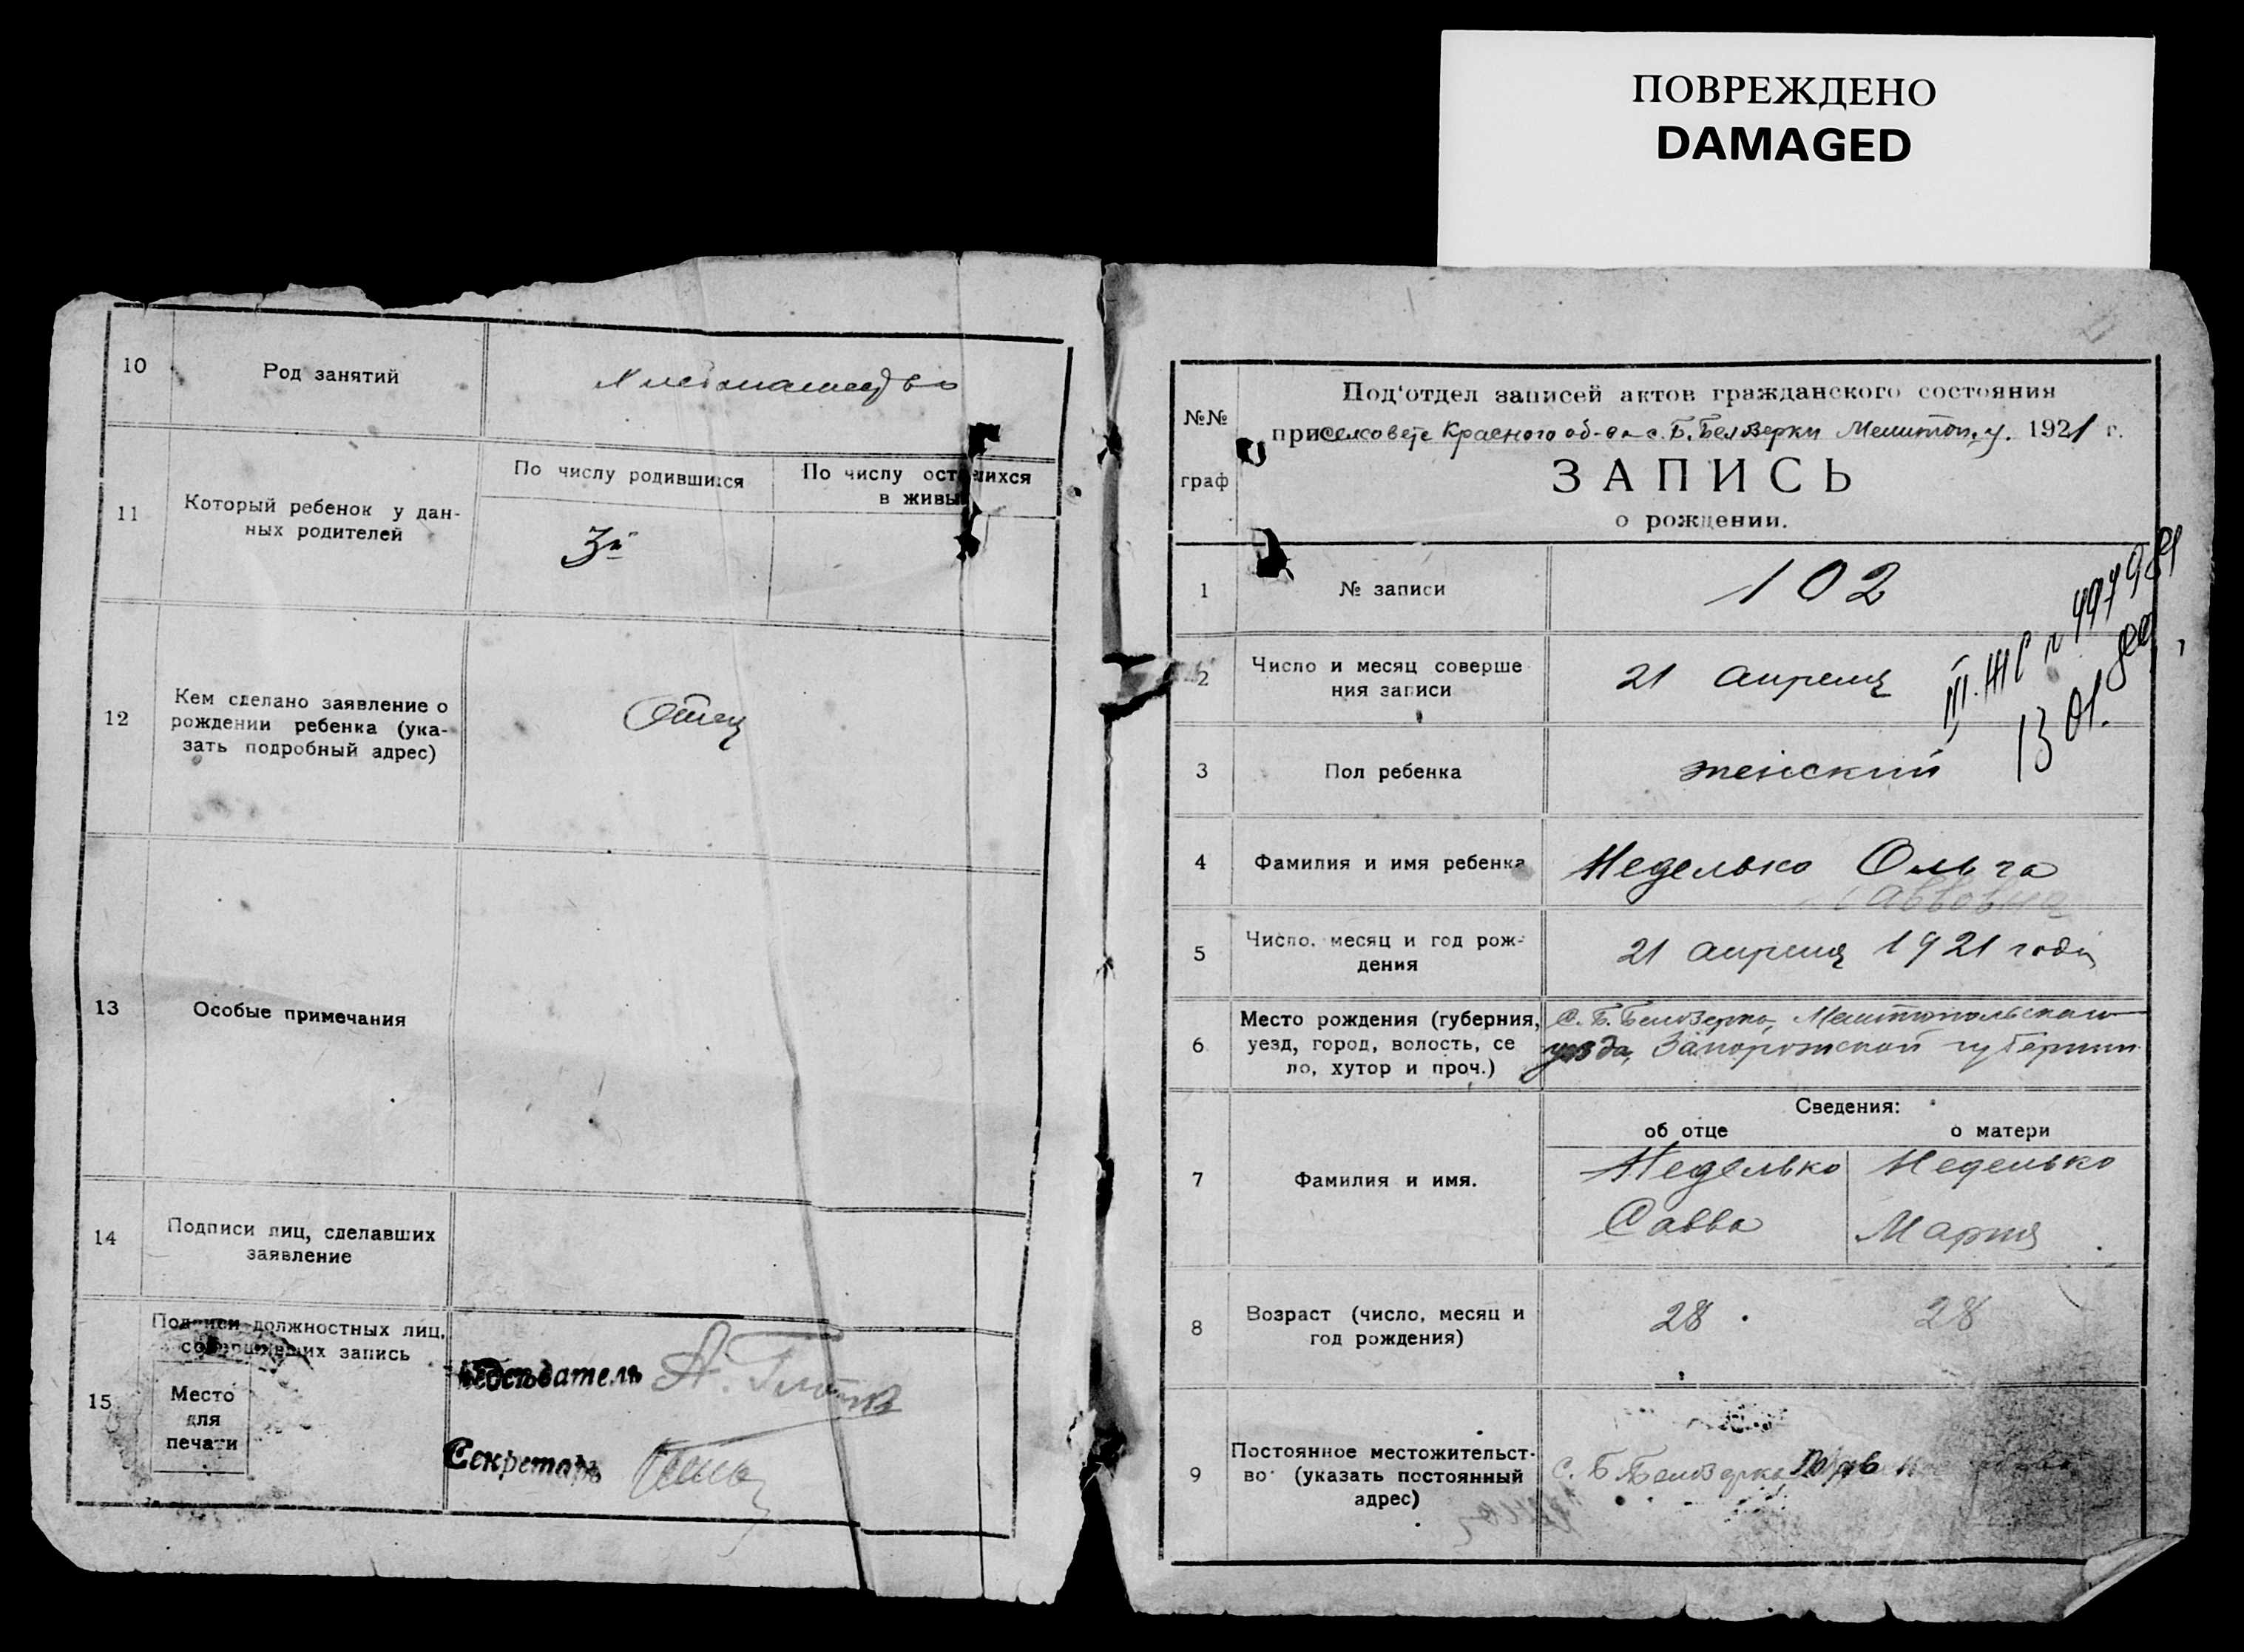 ПОВРЕЖДЕНО
DAMAGED
10
Род занятий
Хлебопашество
11
Который ребенок у дан-
ных родителей
По числу родившихся
По числу оставшихся
в живых
3й
12
Кем сделано заявление о
рождении ребенка (ука-
зать подробный адрес)
Отец
13
Особые примечания
14
Подписи лиц, сделавших
заявление
15
Подписи должностных лиц,
совершивших запись
Место
для
печати
Председатель А.
Секретарь
№№
граф
Под'отдел записей актов гражданского состояния
при селсовете Красного об-ва с. Б. Белзерки Мелитоп. у. 1921 г.
ЗАПИСЬ
о рождении.
1
№ записи
102
2
Число и месяц соверше
ния записи
21 апреля
III. ЖС №
13 01.
3
Пол ребенка
женский
4
Фамилия и имя ребенка
Неделько Ольга
Саввовна
5
Число, месяц и год рож-
дения
21 апреля 1921 года
6
Место рождения (губерния,
уезд, город, волость, се
ло, хутор и проч.)
С. Б. Белозерка, Мелитопольского
уезда, Запорожской губернии
Сведения:
об отце
о матери
7
Фамилия и имя.
Неделько
Савва
Неделько
Мария
8
Возраст (число, месяц и
год рождения)
28
28
9
Постоянное местожительст-
во (указать постоянный
адрес)
с. Б Белозерка